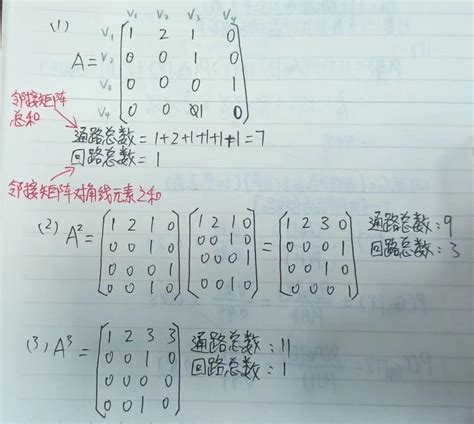 (1)
V₁ V₂ V₃ V₄
V₁ 1 2 1 0
A= V₂ 0 0 1 0
V₃ 0 0 0 1
V₄ 0 0 1 0
邻接矩阵
总和
通路总数=1+2+1+1+1+1=7
回路总数=1
邻接矩阵对角线元素之和
(2) A²= [1 2 1 0] [1 2 1 0] = [1 2 3 0] 通路总数:9
[0 0 1 0] [0 0 1 0] [0 0 0 1] 回路总数:3
[0 0 0 1] [0 0 0 1] [0 0 1 0]
[0 0 1 0] [0 0 1 0] [0 0 0 1]
(3) A³= [1 2 3 3] 通路总数:11
[0 0 1 0] 回路总数:1
[0 0 0 0]
[0 0 1 0]